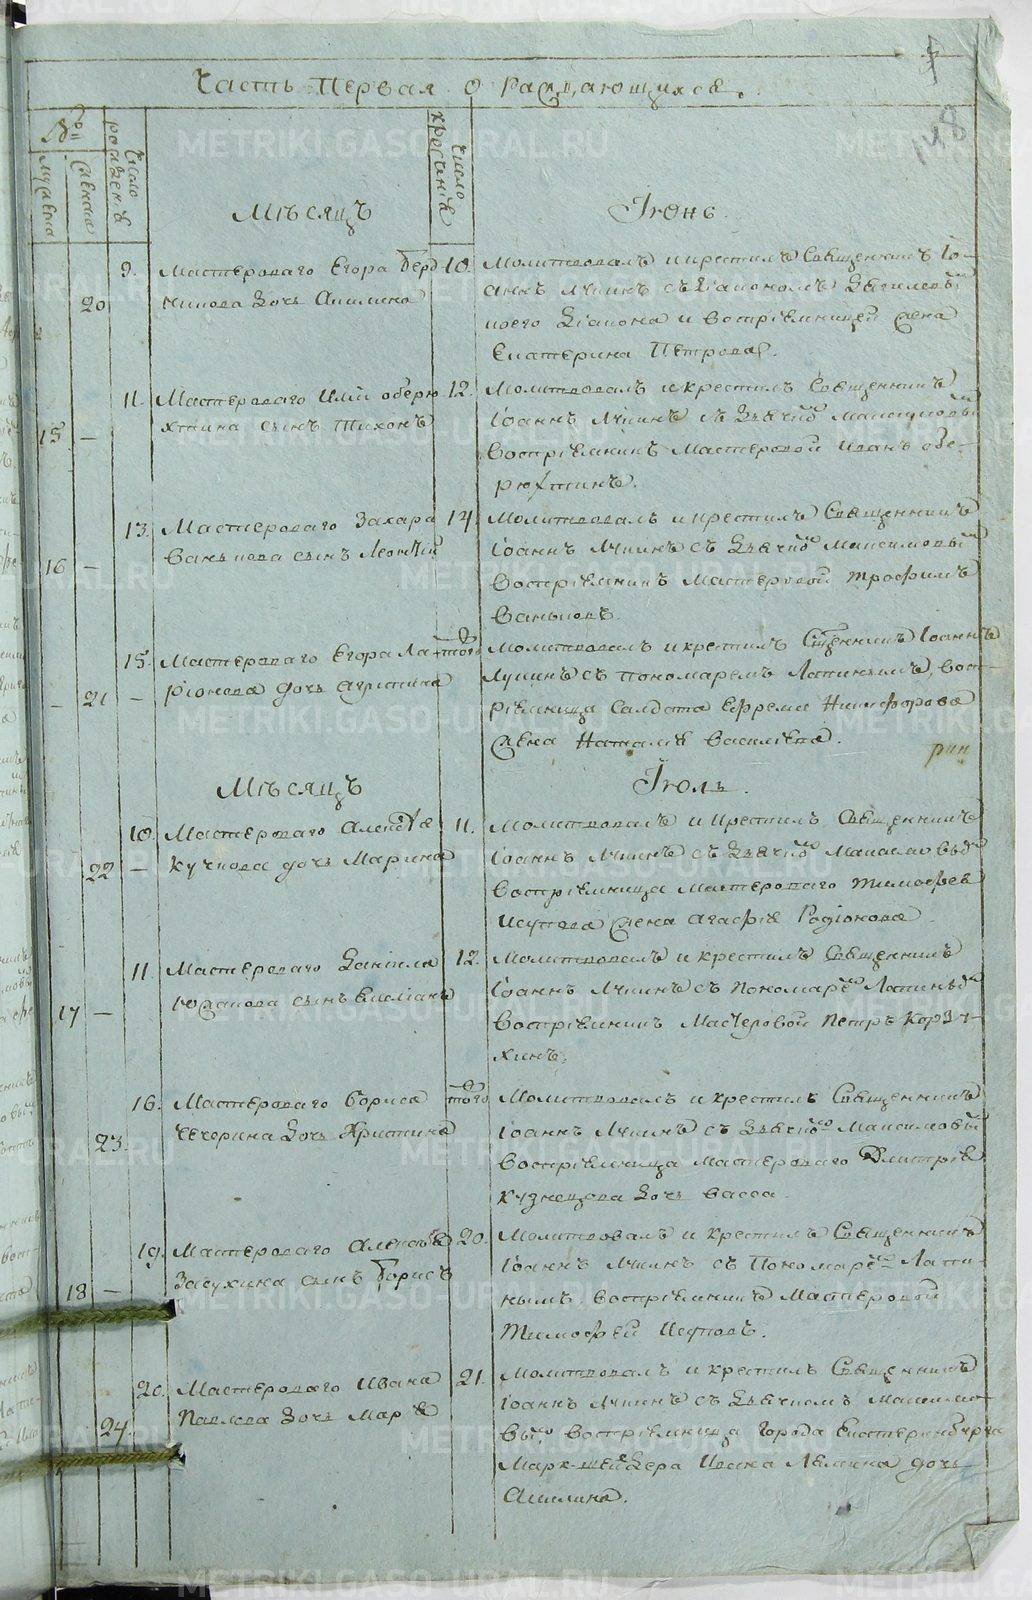 Часть Первая о раждающихся.
148
№
мужеска
женска
число рождения
число крещения
Мѣсяцъ
Іюнь.
20
9. Мастероваго Егора Берд
никова дочь Акилина
10. Молитвовалъ и крестилъ Священникъ Іо-
аннъ Лукинъ съ діакономъ
коего діакона и воспріемницей жена
Екатерина Петрова.
15 —
11. Мастероваго Иліи оберю
хтина сынъ Тихонъ
12. Молитвовалъ и крестилъ Священникъ
Іоаннъ Лукинъ съ дьячкомъ Максимовымъ
воспріемникъ Мастеровой Иванъ обе-
рюхтинъ.
16 —
13. Мастероваго Захара
Ванькова сынъ Леонтій
14. Молитвовалъ и крестилъ Священникъ
Іоаннъ Лукинъ съ дьячкомъ Максимовымъ
воспріемникъ Мастеровой Трофимъ
Ваньковъ.
— 21 —
15. Мастероваго Егора Ла
ріонова дочь агрипина
того
Молитвовалъ и крестилъ Священникъ Іоаннъ
Лукинъ съ пономаремъ Лапинымъ, вос-
пріемница Салдата Ефрема Никифорова
жена Наталія Василіева.
Мѣсяцъ
Іюль.
22 —
10. Мастероваго Алексѣя
кучкова дочь Марина
11. Молитвовалъ и крестилъ Священникъ
Іоаннъ Лукинъ съ дьячкомъ
воспріемница мастероваго тимофея
Исупова жена агафія Родіонова
17 —
11. Мастероваго Даніила
Юдакова сынъ Емиліанъ
12. Молитвовалъ и крестилъ Священникъ
Іоаннъ Лукинъ съ пономаремъ Лапинымъ
воспріемникъ Мастеровой Петръ Корзу-
хинъ.
23.
16. Мастероваго Бориса
Чечерина дочь Христина
того
Молитвовалъ и крестилъ Священникъ
Іоаннъ Лукинъ съ дьячкомъ Максимовымъ
воспріемница мастероваго Димитрія
кузнецова дочь васса.
18 —
19. Мастероваго Алексѣя
Засухина сынъ Борисъ
20. Молитвовалъ и крестилъ Священникъ
Іоаннъ Лукинъ съ Пономаремъ Лапи-
нымъ, воспріемникъ Мастеровой
Тимофей Исуповъ.
24.
20. Мастероваго Ивана
Павлова дочь Марія
21. Молитвовалъ и крестилъ Священникъ
Іоаннъ Лукинъ съ дьячкомъ Максимо-
вымъ воспріемница города Екатеринбурга
Марк-шейдера Ивана Лемина дочь
Акилина.
METRIKI.GASO-URAL.RU